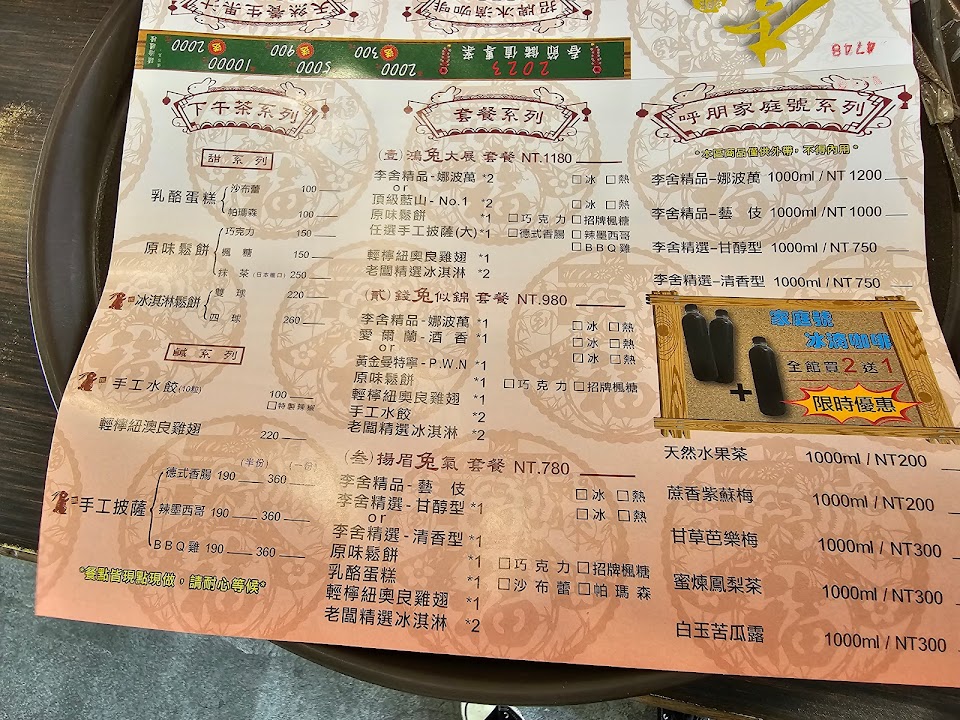 天然養生果汁
招牌冰滴咖啡
李
4748
2023 春節儲值專案
2000 送 300
5000 送 900
10000 送 2000
下午茶系列
甜系列
乳酪蛋糕
沙布蕾 100
帕瑪森 100
原味鬆餅
巧克力 150
楓糖 150
抹茶(日本進口) 250
冰淇淋鬆餅
雙球 220
四球 260
鹹系列
手工水餃(10粒) 100
□特製辣椒
輕檸紐澳良雞翅 220
(半份) (一份)
手工披薩
德式香腸 190 360
辣墨西哥 190 360
BBQ雞 190 360
*餐點皆現點現做,請耐心等候*
套餐系列
(壹) 鴻兔大展 套餐 NT.1180
李舍精品-娜波萬 *2 □冰 □熱
or
頂級藍山-No.1 *2 □冰 □熱
原味鬆餅 *1 □巧克力 □招牌楓糖
任選手工披薩(大) *1 □德式香腸 □辣墨西哥
□BBQ雞
輕檸紐奧良雞翅 *1
老闆精選冰淇淋 *2
(貳) 錢兔似錦 套餐 NT.980
李舍精品-娜波萬 *1 □冰 □熱
愛爾蘭-酒香 *1 □冰 □熱
or
黃金曼特寧-P.W.N *1 □冰 □熱
原味鬆餅 *1 □巧克力 □招牌楓糖
輕檸紐奧良雞翅 *1
手工水餃 *2
老闆精選冰淇淋 *2
(叁) 揚眉兔氣 套餐 NT.780
李舍精品-藝伎
李舍精選-甘醇型 *1 □冰 □熱
or
李舍精選-清香型 *1 □冰 □熱
原味鬆餅 *1 □巧克力 □招牌楓糖
乳酪蛋糕 *1 □沙布蕾 □帕瑪森
輕檸紐奧良雞翅 *1
老闆精選冰淇淋 *2
呼朋家庭號系列
*本區商品僅供外帶,不得內用*
李舍精品-娜波萬 1000ml / NT 1200
李舍精品-藝伎 1000ml / NT 1000
李舍精選-甘醇型 1000ml / NT 750
李舍精選-清香型 1000ml / NT 750
家庭號
冰滴咖啡
全館買2送1
限時優惠
+
天然水果茶 1000ml / NT200
蔗香紫蘇梅 1000ml / NT200
甘草芭樂梅 1000ml / NT300
蜜煉鳳梨茶 1000ml / NT300
白玉苦瓜露 1000ml / NT300